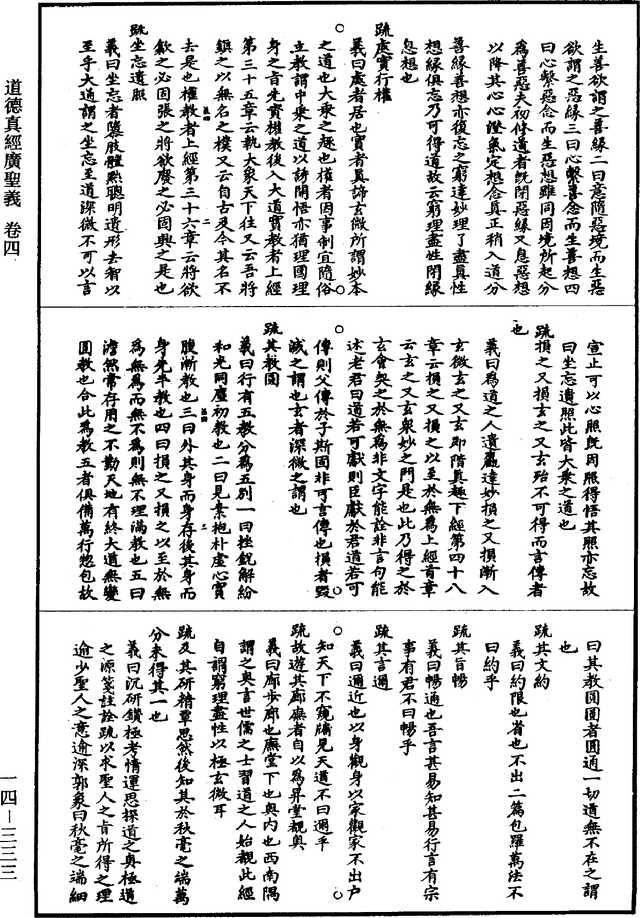 道德真經廣聖義 卷四
一四—三三三
生善欲謂之善緣二曰意隨惡境而生惡
欲謂之惡緣三曰心繫善念而生善想四
曰心繫惡念而生惡想雖同因境所起分
為善惡夫初修道者既閉惡緣又息惡想
以降其心心澄氣定想念真正稍入道分
善緣善想亦復忘之窮達妙理了盡真性
想緣俱忘乃可得道故云窮理盡性閉緣
息想也
疏處實行權
義曰處者居也實者真諦玄微所謂妙本
之道也大乘之趣也權者因事制宜隨俗
立教謂中乘之道以誘開悟亦猶理國理
身之言先實權教後入大道實教者上經
第三十五章云執大象天下往又云吾將
鎮之以無名之樸又云自古及今其名不
去是也權教者上經第三十六章云將欲
歙之必固張之將欲廢之必固興之是也
疏坐忘遺照
義曰坐忘者墮肢體黜聰明遺形去智以
至乎大道謂之坐忘至道深微不可以言
宣止可以心照既因照得悟其照亦忘故
曰坐忘遺照此皆大乘之道也
疏損之又損玄之又玄殆不可得而言傳者
也
義曰為道之人遺羸達妙損之又損漸入
玄微玄之又玄即階真趣下經第四十八
章云損之又損之以至於無為上經首章
云玄之又玄眾妙之門是也此乃得之於
玄會契之於無為非文字能詮非言句能
述老君曰道若可獻則臣獻於君道若可
傳則父傳於子斯固非可言傳也損者毀
減之謂也玄者深微之謂也
疏其教圓
義曰行有五教分為五別一曰挫銳解紛
和光同塵初教也二曰見素抱朴虛心實
腹漸教也三曰外其身而身存後其身而
身先半教也四曰損之又損之以至於無
為無為而無不為則無不理滿教也五曰
澹然常存用之不勤天地有終大道無變
圓教也合此為教五者俱備萬行惣包故
曰其教圓圓者圓通一切道無不在之謂
也
疏其文約
義曰約限也省也不出二篇包羅萬法不
曰約乎
疏其旨暢
義曰暢通也吾言甚易知甚易行言有宗
事有君不曰暢乎
疏其言邇
義曰邇近也以身觀身以家觀家不出戶
知天下不窺牖見天道不曰邇乎
疏故遊其廊廡者自以為昇堂覩奧
義曰廊步廊也廡堂下也奧內也西南隅
謂之奧言世儒之士習道之人始覩此經
自謂窮理盡性以極玄微耳
疏及其研精覃思然後知其於秋毫之端萬
分未得其一也
義曰沉研鑽極考情運思探道之奧極道
之源箋註詮疏以求聖人之旨所得之理
逾少聖人之意逾深郭象曰秋毫之端細